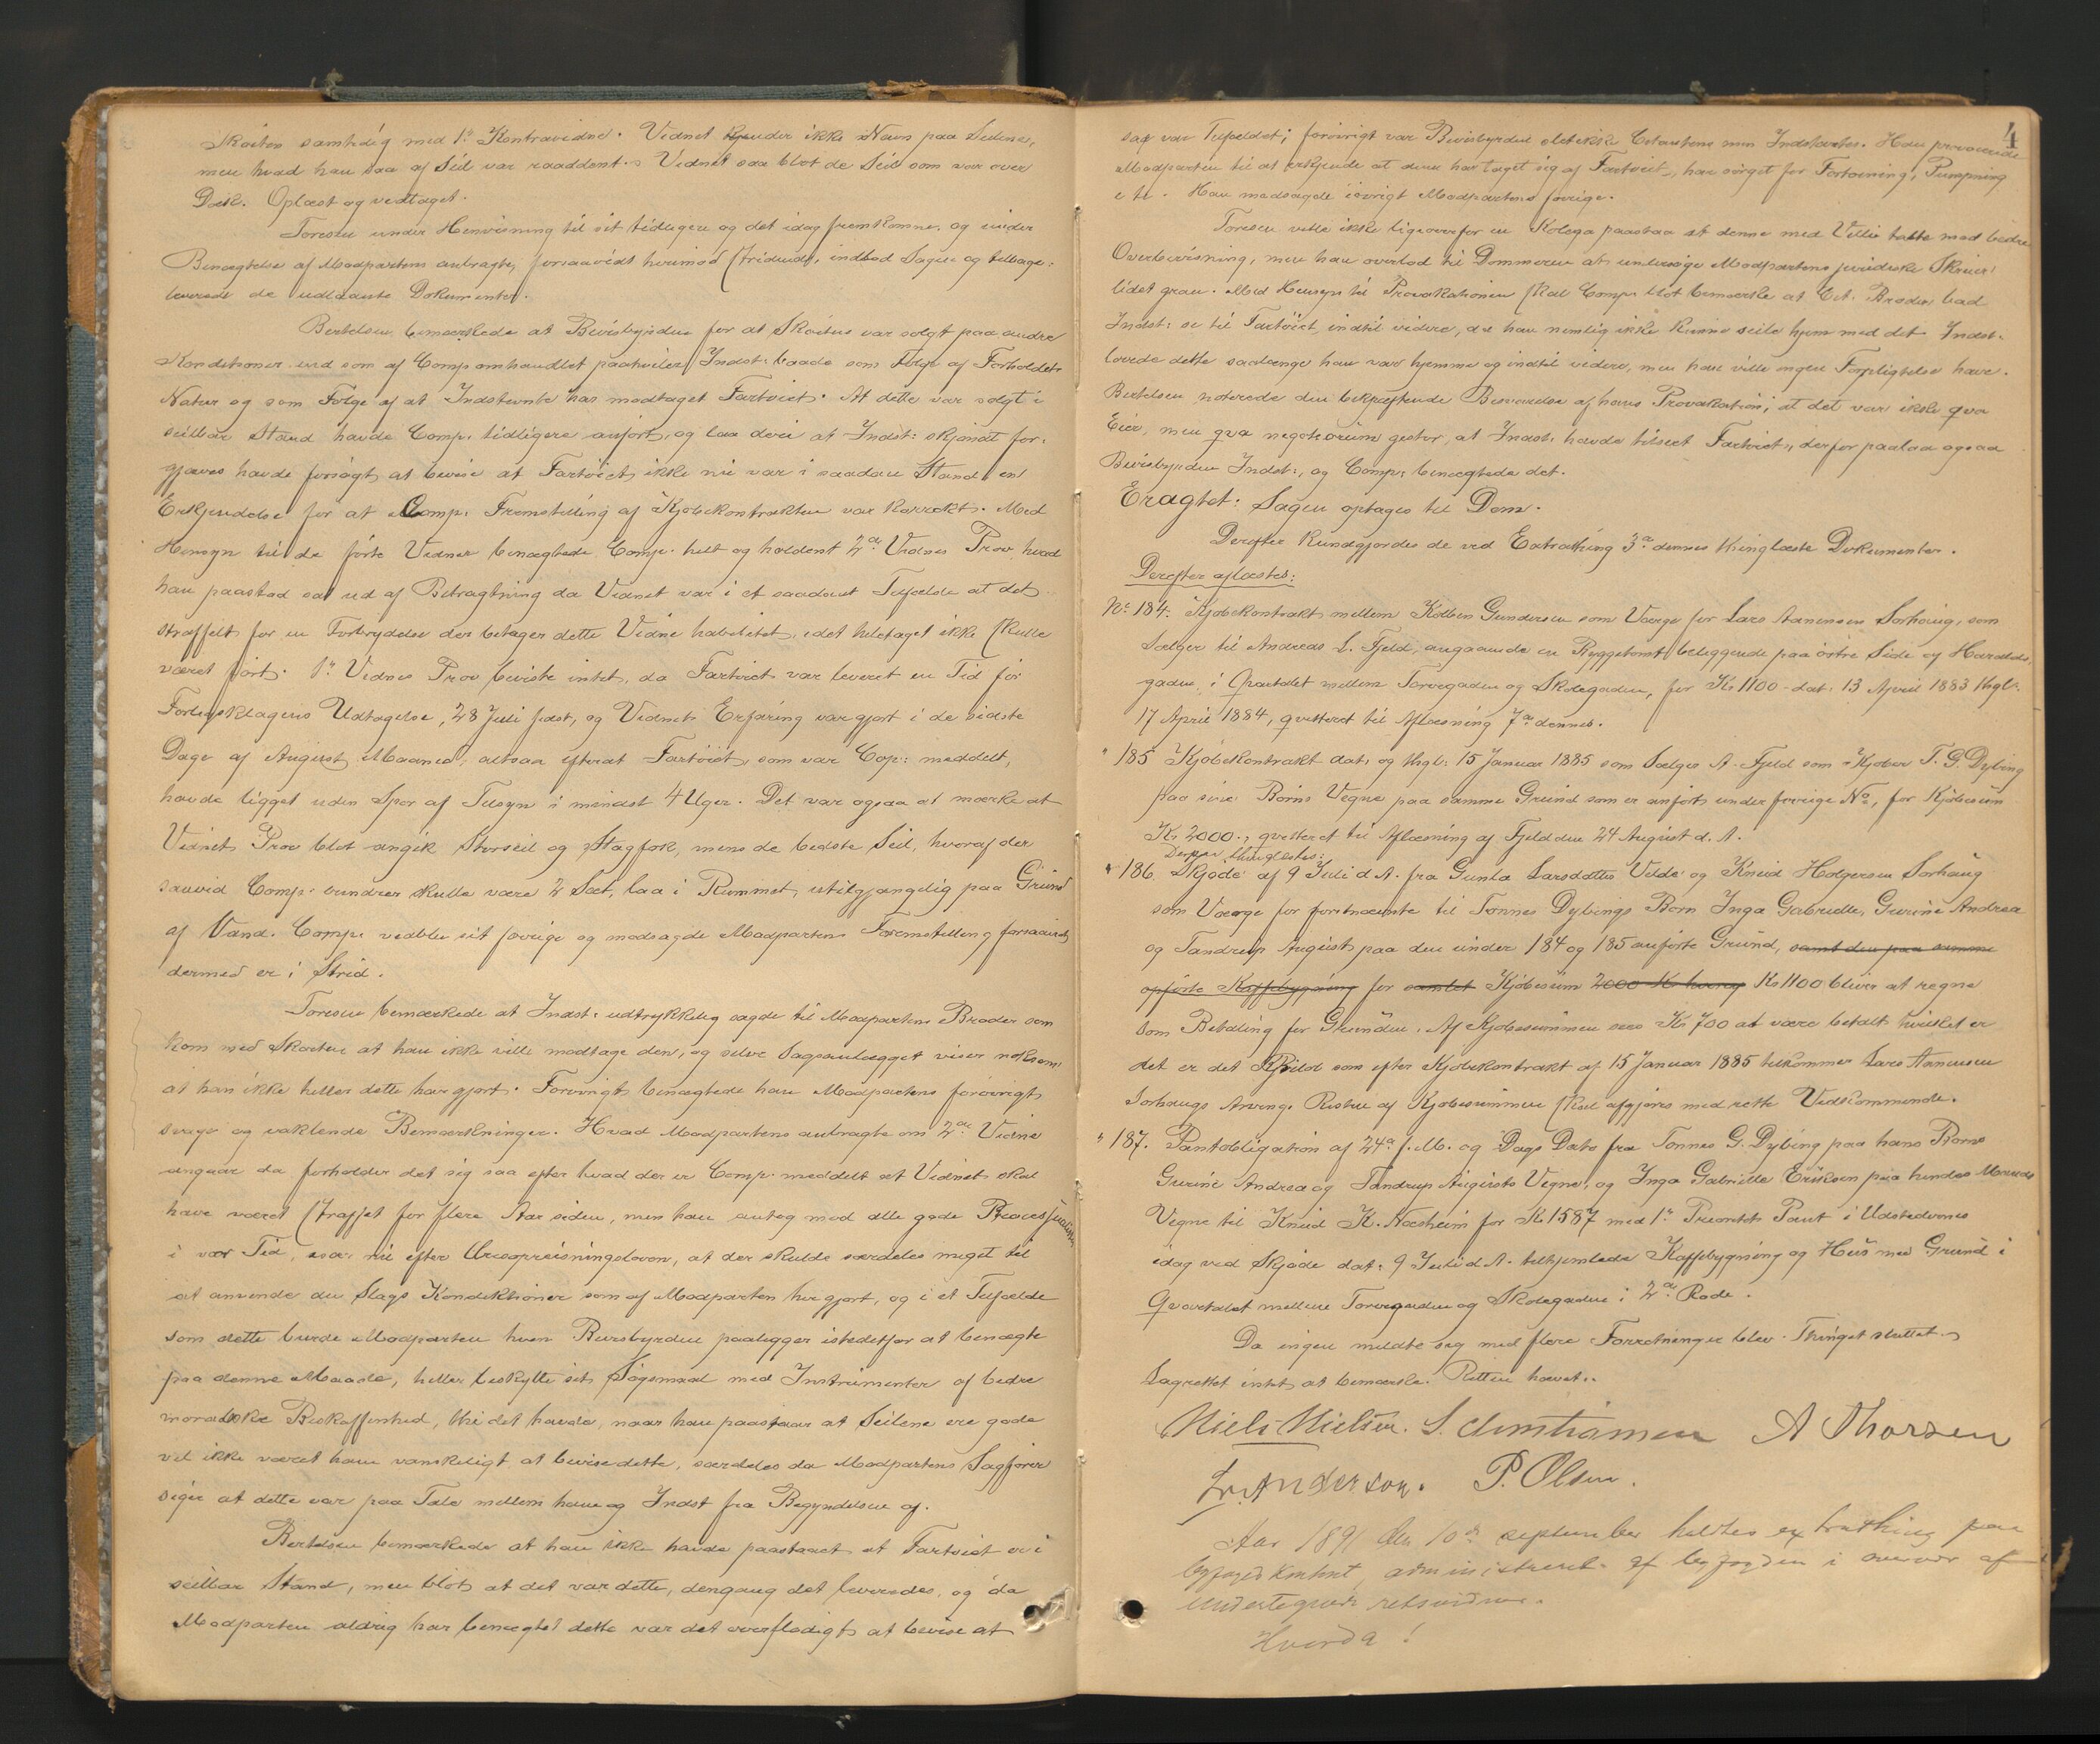 Skøiten samtidig med 1ste Kontravidne. Vidnet kjender ikke Navn paa Seilene,
men hvad han saa af Seil var raaddent. Vidnet saa blot de Seil som var over
Dæk. Oplæst og vedtaget.
Toresen under Henvisning til sit tidligere og det idag fremkomne og under
Benægtelse af Modpartens anbragte, forsaavidt herimod stridende, indlod Sagen og tilbage-
leverede de udlaante Dokumenter.
Bertelsen bemærkede at Bevisbyrden for at Skøiten var solgt paa andre
Konditioner end som af Comp. omhandlet paahviler Indst. baade som Følge af Forholdets
Natur og som Følge af at Indstevnte har modtaget Fartøiet. At dette var solgt i
seilbar Stand havde Comp. tidligere anført, og laa deri at Indst: skjønt for-
gjæves havde forsøgt at bevise at Fartøiet ikke nu var i saadan Stand, en
Erkjendelse for at Comp. Fremstilling af Kjøbekontrakten var korrekt. Med
Hensyn til de førte Vidner benægtede Comp. helt og holdent 2det Vidnes Prov, hvad
han paastod sat ud af Betragtning da Vidnet var i et saadant Tilfælde at det
straffelt for en Forbrydelse der betager dette Vidne habilitet, idet heletaget ikke skulle
været ført. 1ste Vidnes Prov beviste intet, da Fartøiet var leveret en Tid før
Forligsklagens Udtagelse, 28 Juli sidst, og Vidnets Erfaring var gjort i de sidste
Dage af August Maaned, altsaa efterat Fartøiet, som var Cop: meddelt,
havde ligget uden Spor af Tilsyn i mindst 4 Uger. Det var ogsaa at mærke at
Vidnets Prov blot angik Storseil og Stagfok, mens de bedste Seil, hvoraf der
sauvid Comp. erindrer skulle være 2 Sæt, laa i Rummet, utilgjængelig paa Grund
af Vand. Comp. vedblev sit forrige og modsagde Modpartens Fremstilling forsaavidt
dermed er i Strid.
Toresen bemærkede at Indst. udtrykkelig sagde til Modpartens Broder som
kom med Skøiten at han ikke ville modtage den, og selve Sagsanlægget viser noksom
at han ikke heller dette har gjort. Forøvrigt benægtede han Modpartens forøvrigt
svage og vaklende Bemærkninger. Hvad Modpartens anbragte om 2det Vidne
angaar da forholder det sig saa efter hvad der er Comp. meddelt at Vidnet skal
have været straffet for flere Aar siden, men han antog mod alle gode Procesjurister
i vor Tid, især nu efter Æresopreisningsloven, at der skulde særdeles meget til
at anvende den Slags Kondiktioner som af Modparten her gjort, og i et Tilfælde
som dette burde Modparten hvem Bevisbyrden paalegger istedetfor at benægte
paa denne Maade, heller beskytte sit Søgsmaal med Instrumenter af bedre
moralske Beskaffenhed, thi det havde, naar han paastaar at Seilene ere gode
vel ikke været ham vanskeligt at bevise dette, særdeles da Modpartens Sagfører
siger at dette var paa Tale mellem ham og Indst fra Begyndelsen af.
Bertelsen bemærkede at han ikke havde paastaaet at Fartøiet er i
seilbar Stand, men blot at det var dette, dengang det leveredes, og da
Modparten aldrig har benægtet dette var det overflødigt at bevise at
4
saa var Tilfældet; forøvrigt var Bevisbyrden slet ikke Citantens men Indstevntes. Han provocerede
Modparten til at erkjende at denne har taget sig af Fartøiet, har sørget for Fortøining, Pumpning
etc. Han modsagde iøvrigt Modpartens forrige.
Toresen vilde ikke ligeoverfor en Kolega paastaa at denne med Villie talte mod bedre
Overbevisning, men han overlod til Dommeren at undersøge Modpartens juridiske Skrier
lidet gran. Med Hensyn til Provokationen skal Comp. blot bemærke at Cit. Broder bad
Indst: se til Fartøiet indtil videre, da han nemlig ikke kunne seile hjem med det. Indst.
lovede dette saalænge han var hjemme og indtil videre, men han ville ingen Forpligtelse have.
Bertelsen noterede den bekræftende Besvarelse af hans Provokation; at det var ikke qva
Eier, men qva negotiorum gestor, at Indst. havde tilseet Fartøiet, derfor paalaa ogsaa
Bevisbyrden Indst:, og Comp: benægtede det.
Eragtet: Sagen optages til Dom.
Derefter kundgjordes de ved Extrathing 3die dennes thinglæste Dokumenter.
Derefter aflæstes:
No 184. Kjøbekontrakt mellem Kolben Gundersen som Værge for Lars Aanensen Sørhaug, som
Sælger til Andreas L. Fjeld, angaaende en Byggetomt beliggende paa østre Side af Haralds-
gaden i Qvartalet mellem Torvegaden og Skolegaden, for Kr 1100 dat: 13 April 1883 thgl:
17 April 1884, qvitteret til Aflæsning 7de dennes.
" 185 Kjøbekontrakt dat. og thgl: 15 Januar 1885 som Sælger A. Fjeld som Kjøber T. G. Dybing
paa sine Børns Vegne paa samme Grund som er anført under forrige No, for Kjøbesum
Kr 2000., qvitteret til Aflæsning af Fjeld den 24 August d. A.
Derpaa thinglæstes:
" 186. Skjøde af 9 Juli d. A. fra Gunla Larsdatter Velde og Knud Holgersen Sørhaug
som Værge for førstnævnte til Tønnes Dybings Børn Inga Gabrielle, Gurine Andrea
og Tandrup August paa den under 184 og 185 anførte Grund, samt den paa samme
opførte Kaffebygning for samlet Kjøbesum 2000 Kr hvoraf Kr 1100 bliver at regne
som Betaling for Grunden. Af Kjøbesummen sees Kr 700 at være betalt hvilket er
det er det Kjøld som efter Kjøbekontrakt af 15 Januar 1885 tilkommer Lars Aanensen
Sørhaugs Arving. Resten af Kjøbesummen skal afgjøres med rette Vedkommende.
" 187. Pantobligation af 24de f. M. og Dags Dato fra Tønnes G. Dybing paa hans Børns
Gurine Andrea og Tandrup Augusts Vegne, og Inga Gabrielle Eriksen paa hendes Mands
Vegne til Knud K. Næsheim for Kr 1587 med 1ste Prioritets Pant i Udstedernes
idag ved Skjøde dat: 9 Juli d. A. tilhjemlede Kaffebygning og Hus med Grund i
Qvartalet mellem Torvegaden og Skolegaden i 2den Rode.
Da ingen meldte sig med flere Forretninger blev Thinget sluttet.
Lagrettet intet at bemærke. Retten hævet.
Niels Nielsen. S. Christiansen A Thorsen
Andersen. P. Olsen.
Aar 1891 den 10de september holdtes extrathing paa
byfogedkontoret, administreret af byfogden i overvær af
undertegnede retsvidner.
Hvorda!